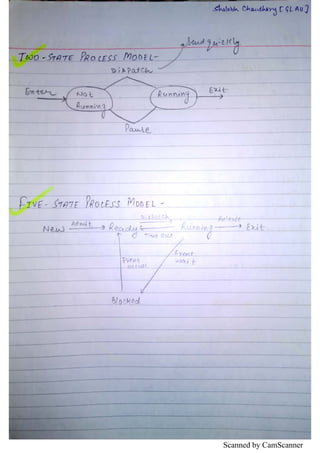 Shilakh Chaudhary [GLAU]
Send quickly
TWO-STATE PROCESS MODEL-
Dispatch
Enter Not Running Running Exit
Pause
FIVE-STATE PROCESS MODEL-
New Admit Ready Dispatch Time out Running Release Exit
Event occurs
Event wait
Blocked
Scanned by CamScanner